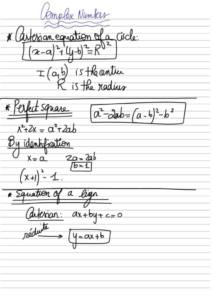 Complex Numbers
* Cartesian equation of a circle:
(x-a)²+(y-b)²=R²
I(a,b) is the center
R is the radius
* Perfect square a²-2ab=(a-b)²-b²
x²+2x = a²+2ab
By identification
x=a 2x=2ab
b=1
(x+1)²-1.
* Equation of a lign
Cartesian: ax+by+c=0
réduite → y=ax+b